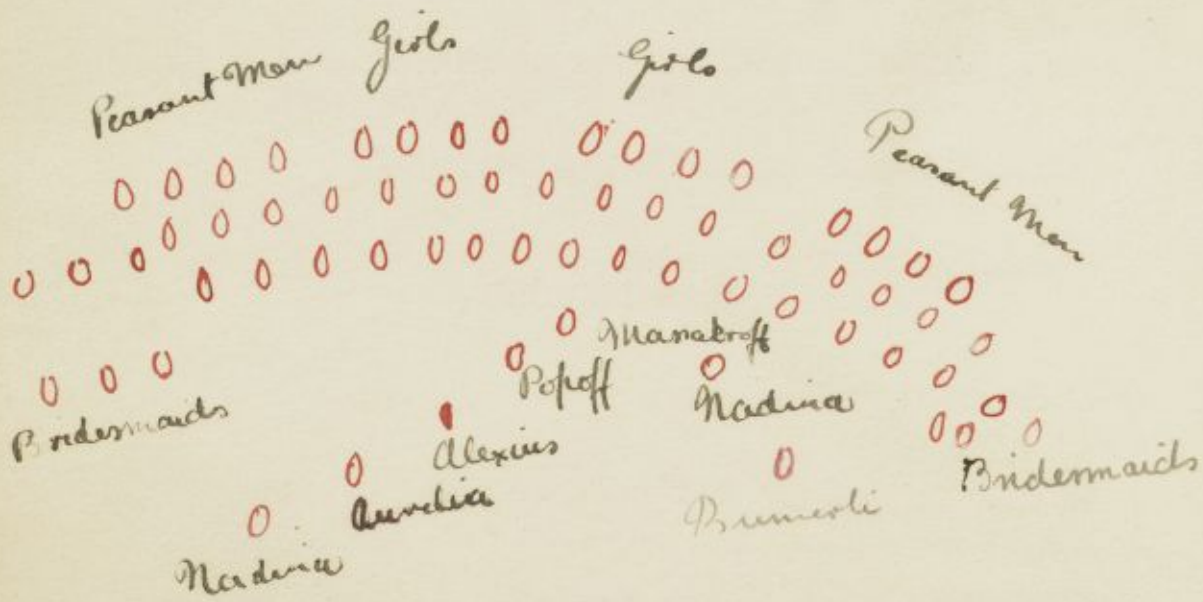 Peasant Men Girls
Girls
Peasant Men
Massakroff
Popoff
Nadina
Bridesmaids
Alexius
Aurelia
Bumerli
Bridesmaids
Nadina